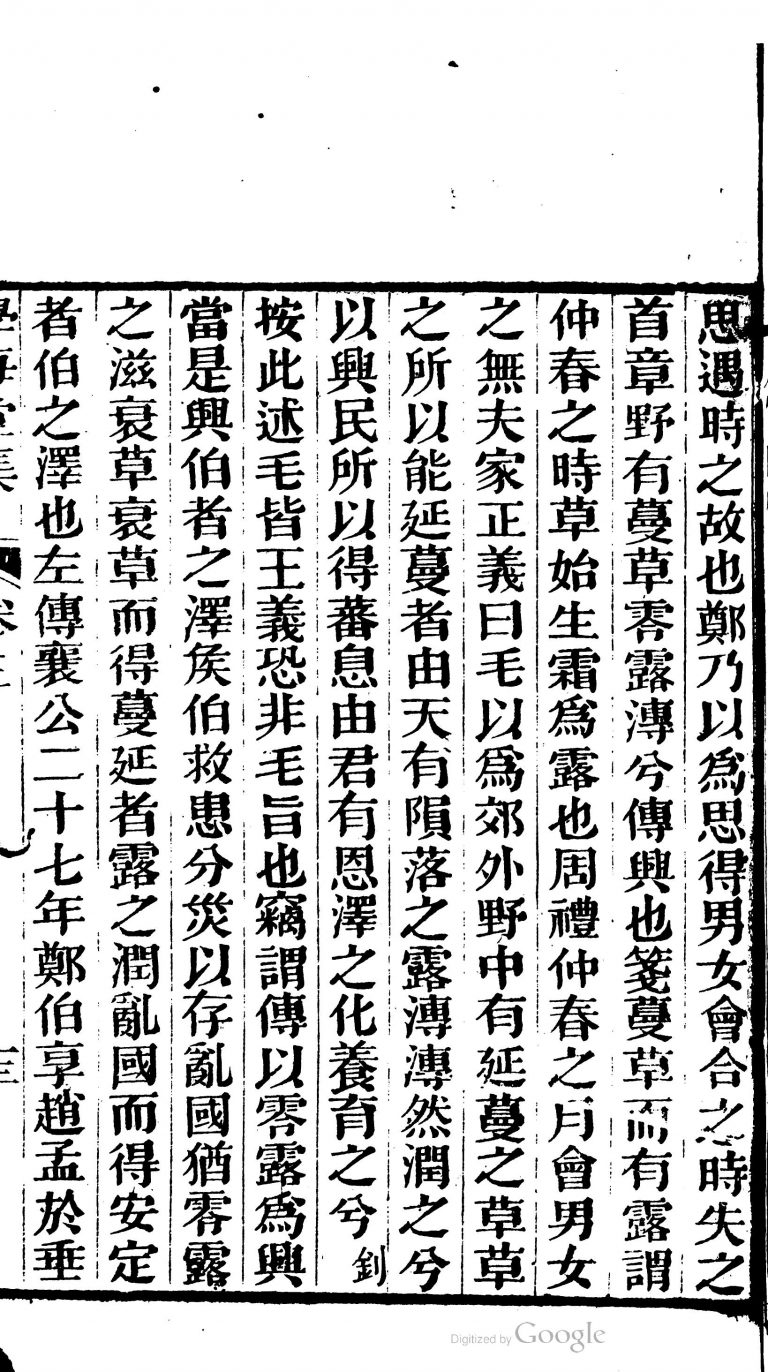 思遇時之故也鄭乃以為思得男女會合之時失之
首章野有蔓草零露漙兮傳興也箋蔓草而有露謂
仲春之時草始生霜為露也周禮仲春之月會男女
之無夫家正義曰毛以為郊外野中有延蔓之草草
之所以能延蔓者由天有隕落之露漙漙然潤之兮
以興民所以得蕃息由君有恩澤之化養育之兮釗
按此述毛皆王義恐非毛旨也竊謂傳以零露為興
當是興伯者之澤矦伯救患分災以存亂國猶零露
之滋衰草衰草而得蔓延者露之潤亂國而得安定
者伯之澤也左傳襄公二十七年鄭伯享趙孟於垂
學海堂集 卷三 三
Digitized by Google